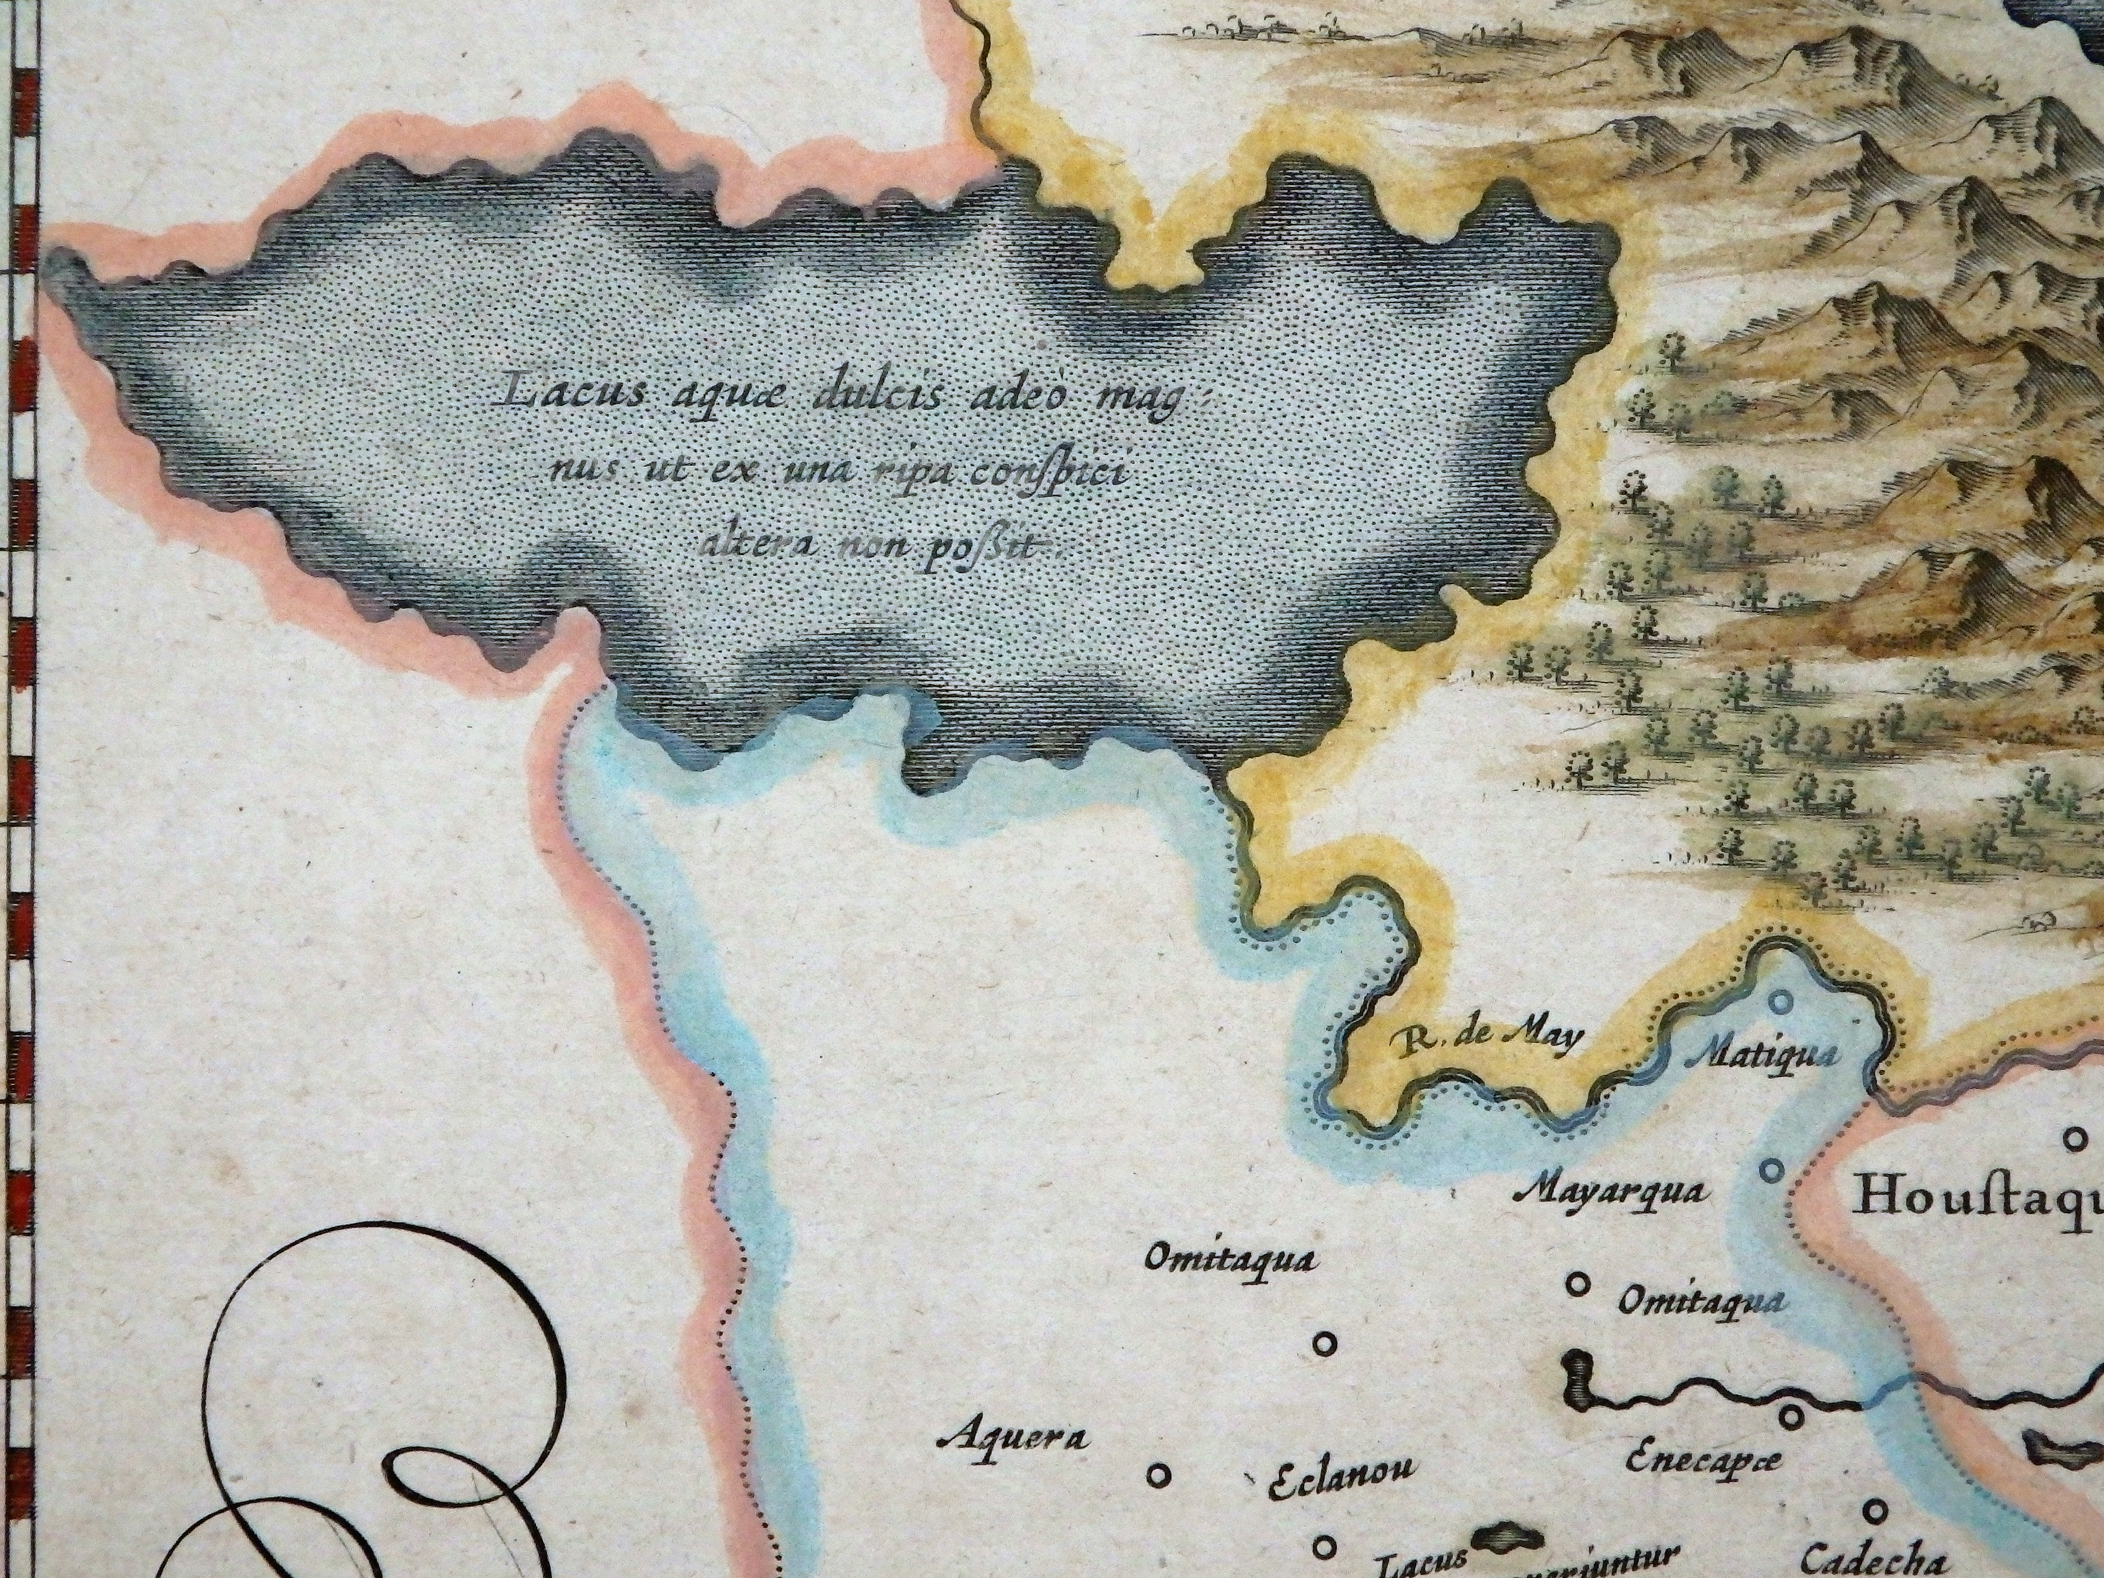 Lacus aquæ dulcis adeò mag-
nus ut ex una ripa conſpici
altera non poßit.
R. de May
Matiqua
Mayarqua
Houſtaqu
Omitaqua
Omitaqua
Aquera
Eclanou
Enecapæ
Lacus
Cadecha